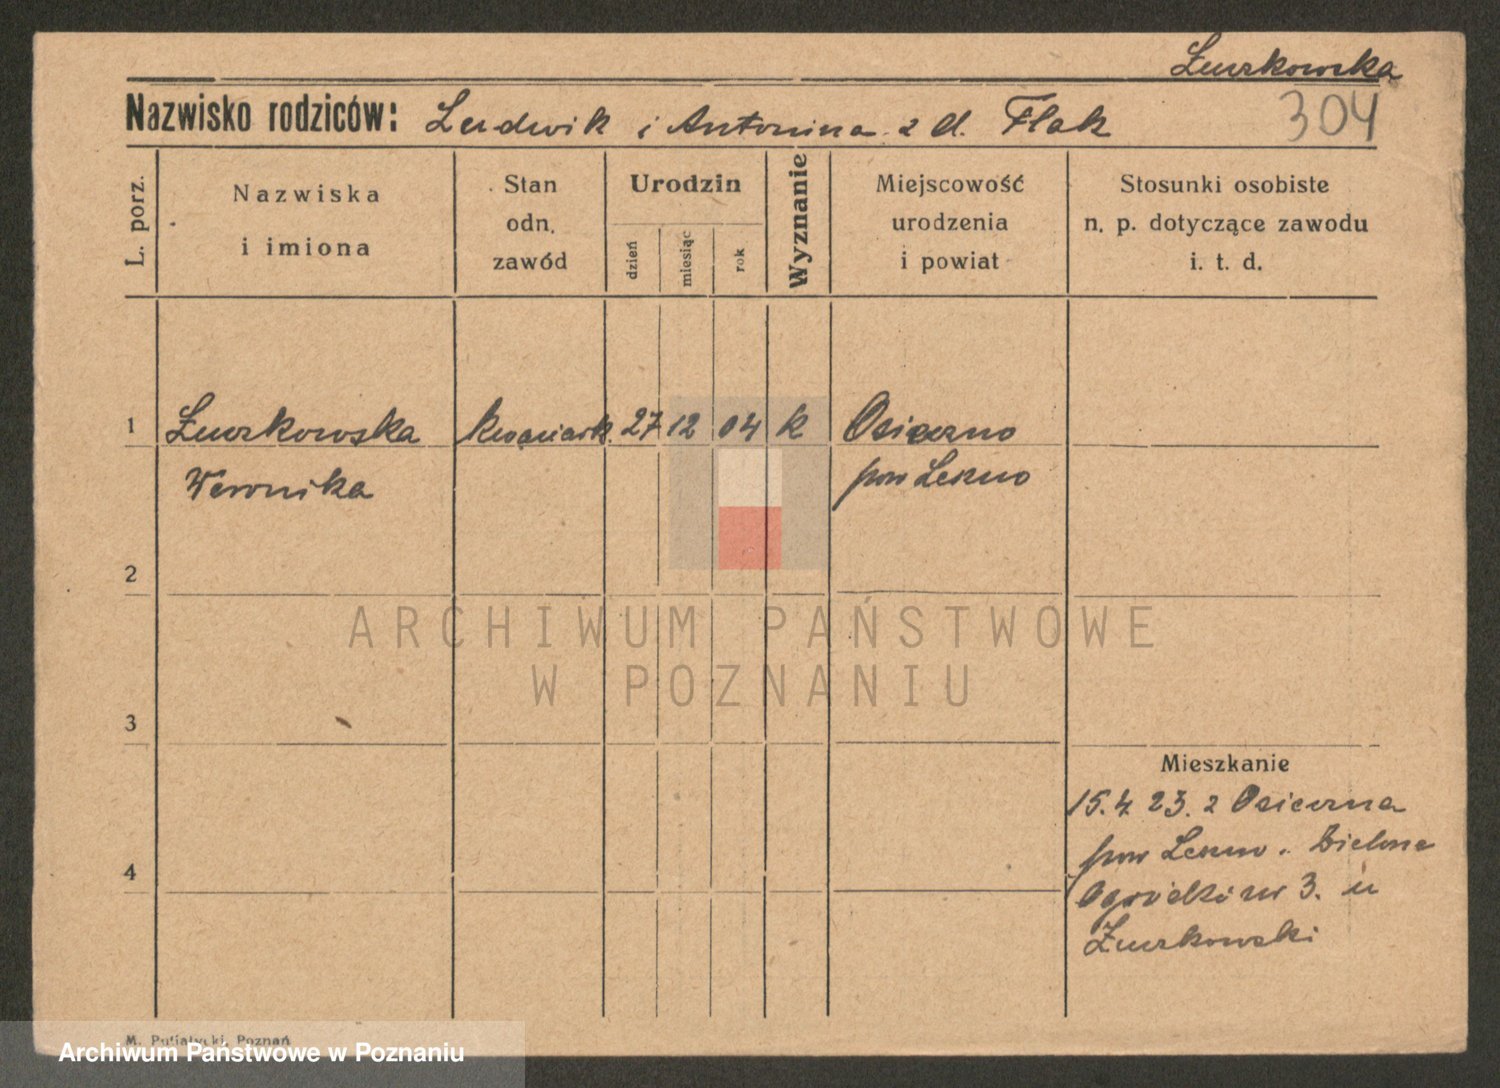 Żurkowska
Nazwisko rodziców: Ludwik i Antonina z d. Flak
304
L. porz.
Nazwiska
i imiona
Stan
odn.
zawód
Urodzin
dzień
miesiąc
rok
Wyznanie
Miejscowość
urodzenia
i powiat
Stosunki osobiste
n. p. dotyczące zawodu
i. t. d.
1 Żurkowska 27 12 04 k Osieczno
Weronika pow Leszno
2
ARCHIWUM PAŃSTWOWE
W POZNANIU
3
Mieszkanie
15.4 23. z Osieczna
pow Leszno.
4
Ogródki nr 3. u
Żurkowski
M. Putiatycki, Poznań
Archiwum Państwowe w Poznaniu